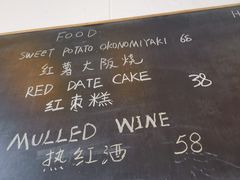 FOOD
SWEET POTATO OKONOMIYAKI 68
红薯大阪烧
RED DATE CAKE 38
红枣糕
MULLED WINE
热红酒 58